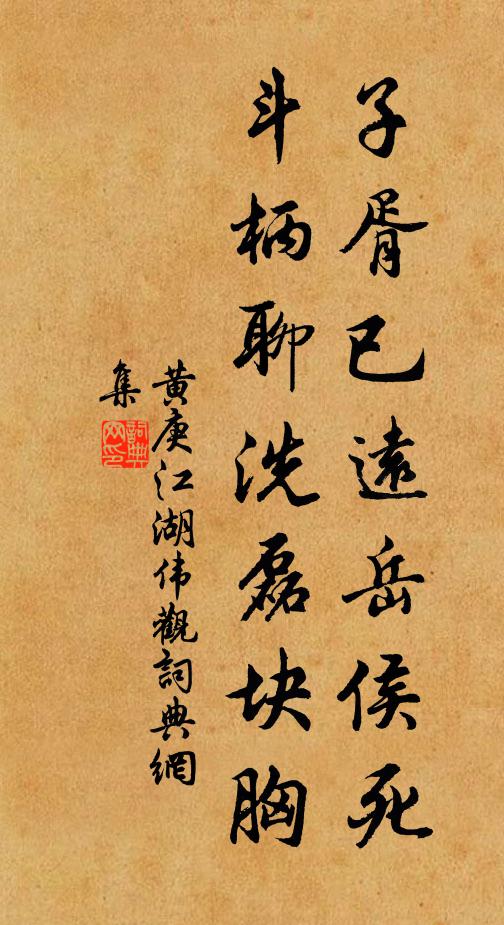 子胥已遠岳侯死
斗柄聊洗磊块胸
黄庚江湖伟觀詞典網
集
詞典网印